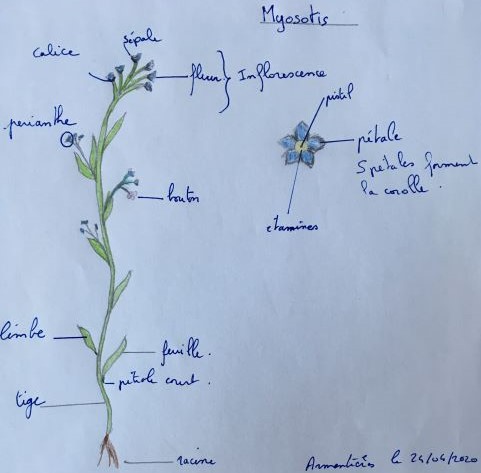 Myosotis
sépale
calice
fleur } Inflorescence
pistil
perianthe
pétale
5 petales forment
la corolle.
bouton
etamines
limbe
feuille.
pétiole court.
tige
racine
Armentières le 24/04/2020